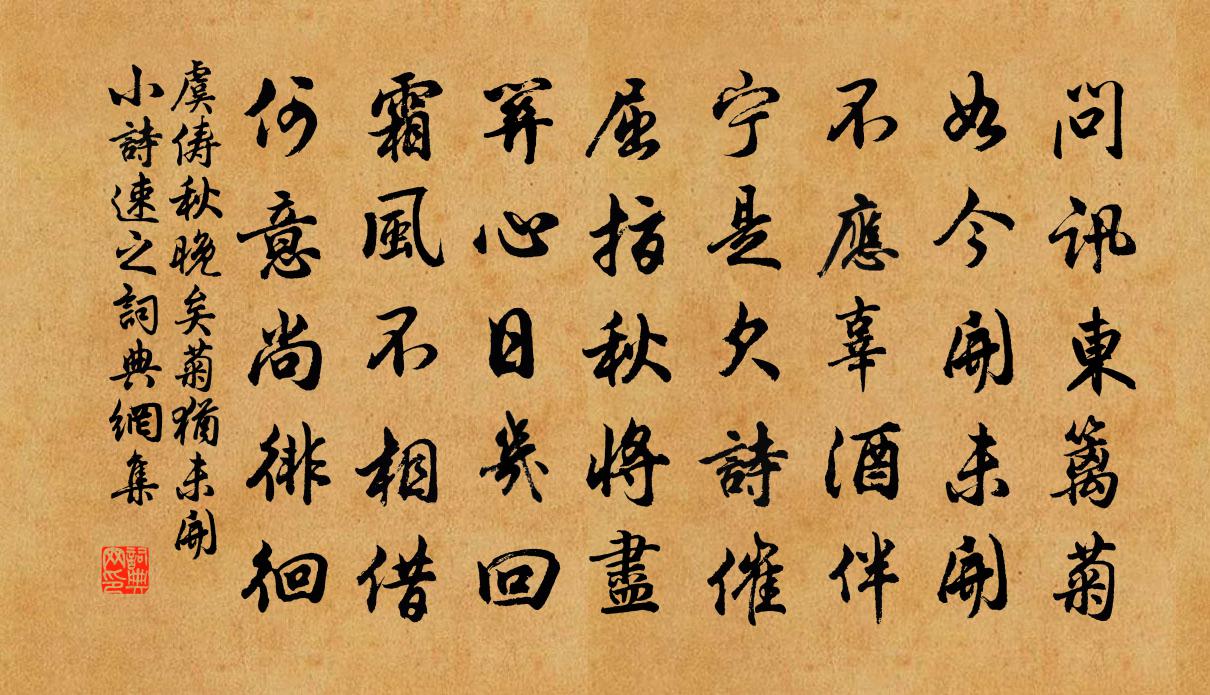 問訊東籬菊
如今開未開
不應辜酒伴
宁是欠詩催
屈指秋將盡
筭心日幾回
霜風不相借
何意尚徘徊
虞儔秋晚矣菊猶未開
小詩速之詞典網集
詞典
网印